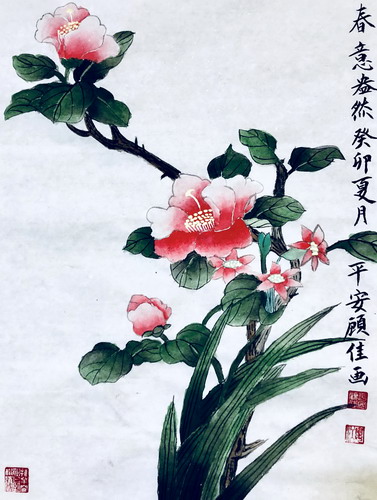 春意盎然癸卯夏月
平安顾佳画